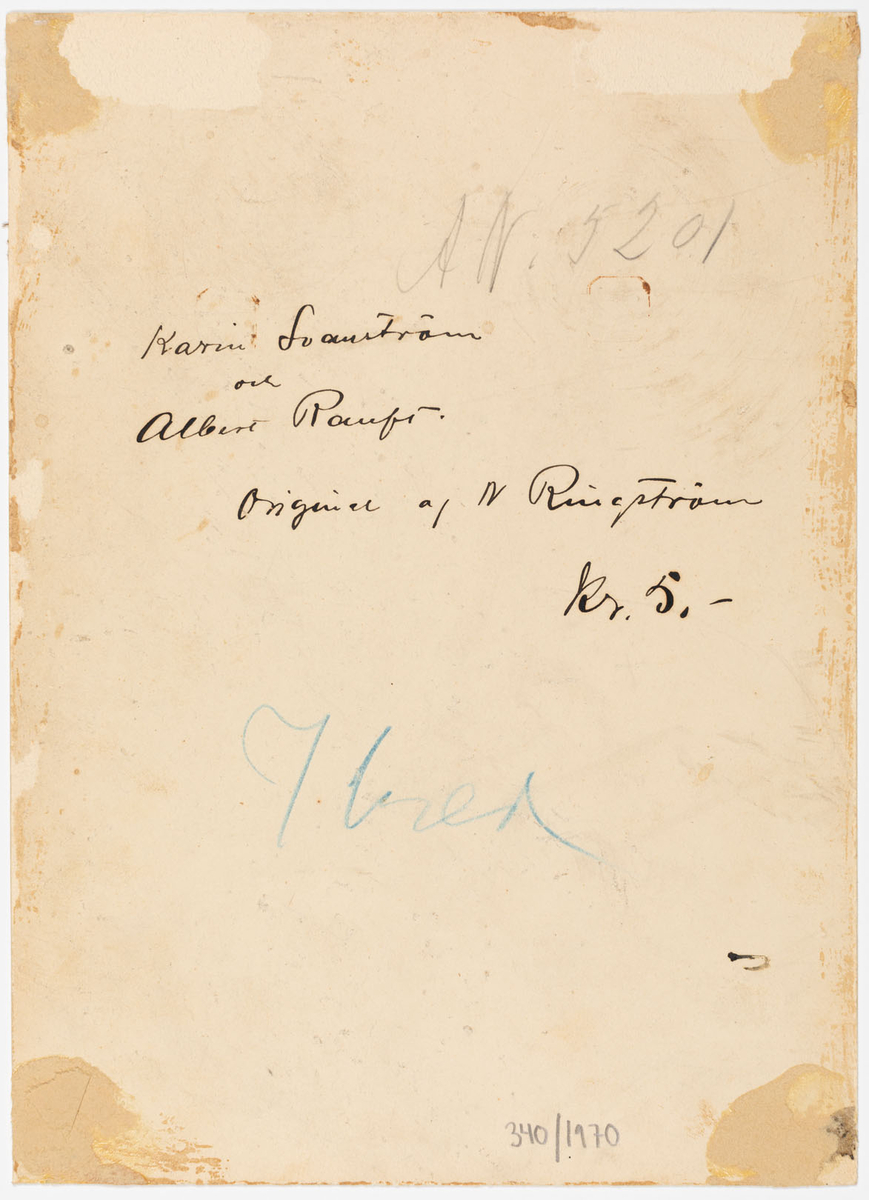 AN. 5201
Karin Svanström
och
Albert Ranft.
Original af N Ringström
Kr. 5.-
340/1970